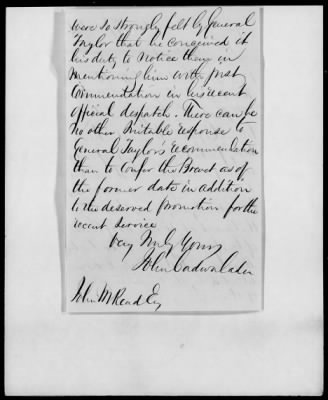 were so strongly felt by General
Taylor that he conceived it
his duty to notice them in
mentioning him with just
Commendation in his recent
official despatch. There can be
no other suitable response to
General Taylor's recommendation
than to confer the Brevet as of
the former date in addition
to the deserved promotion for the
recent service
Very Truly Yours
John Cadwalader
John M Read Esq